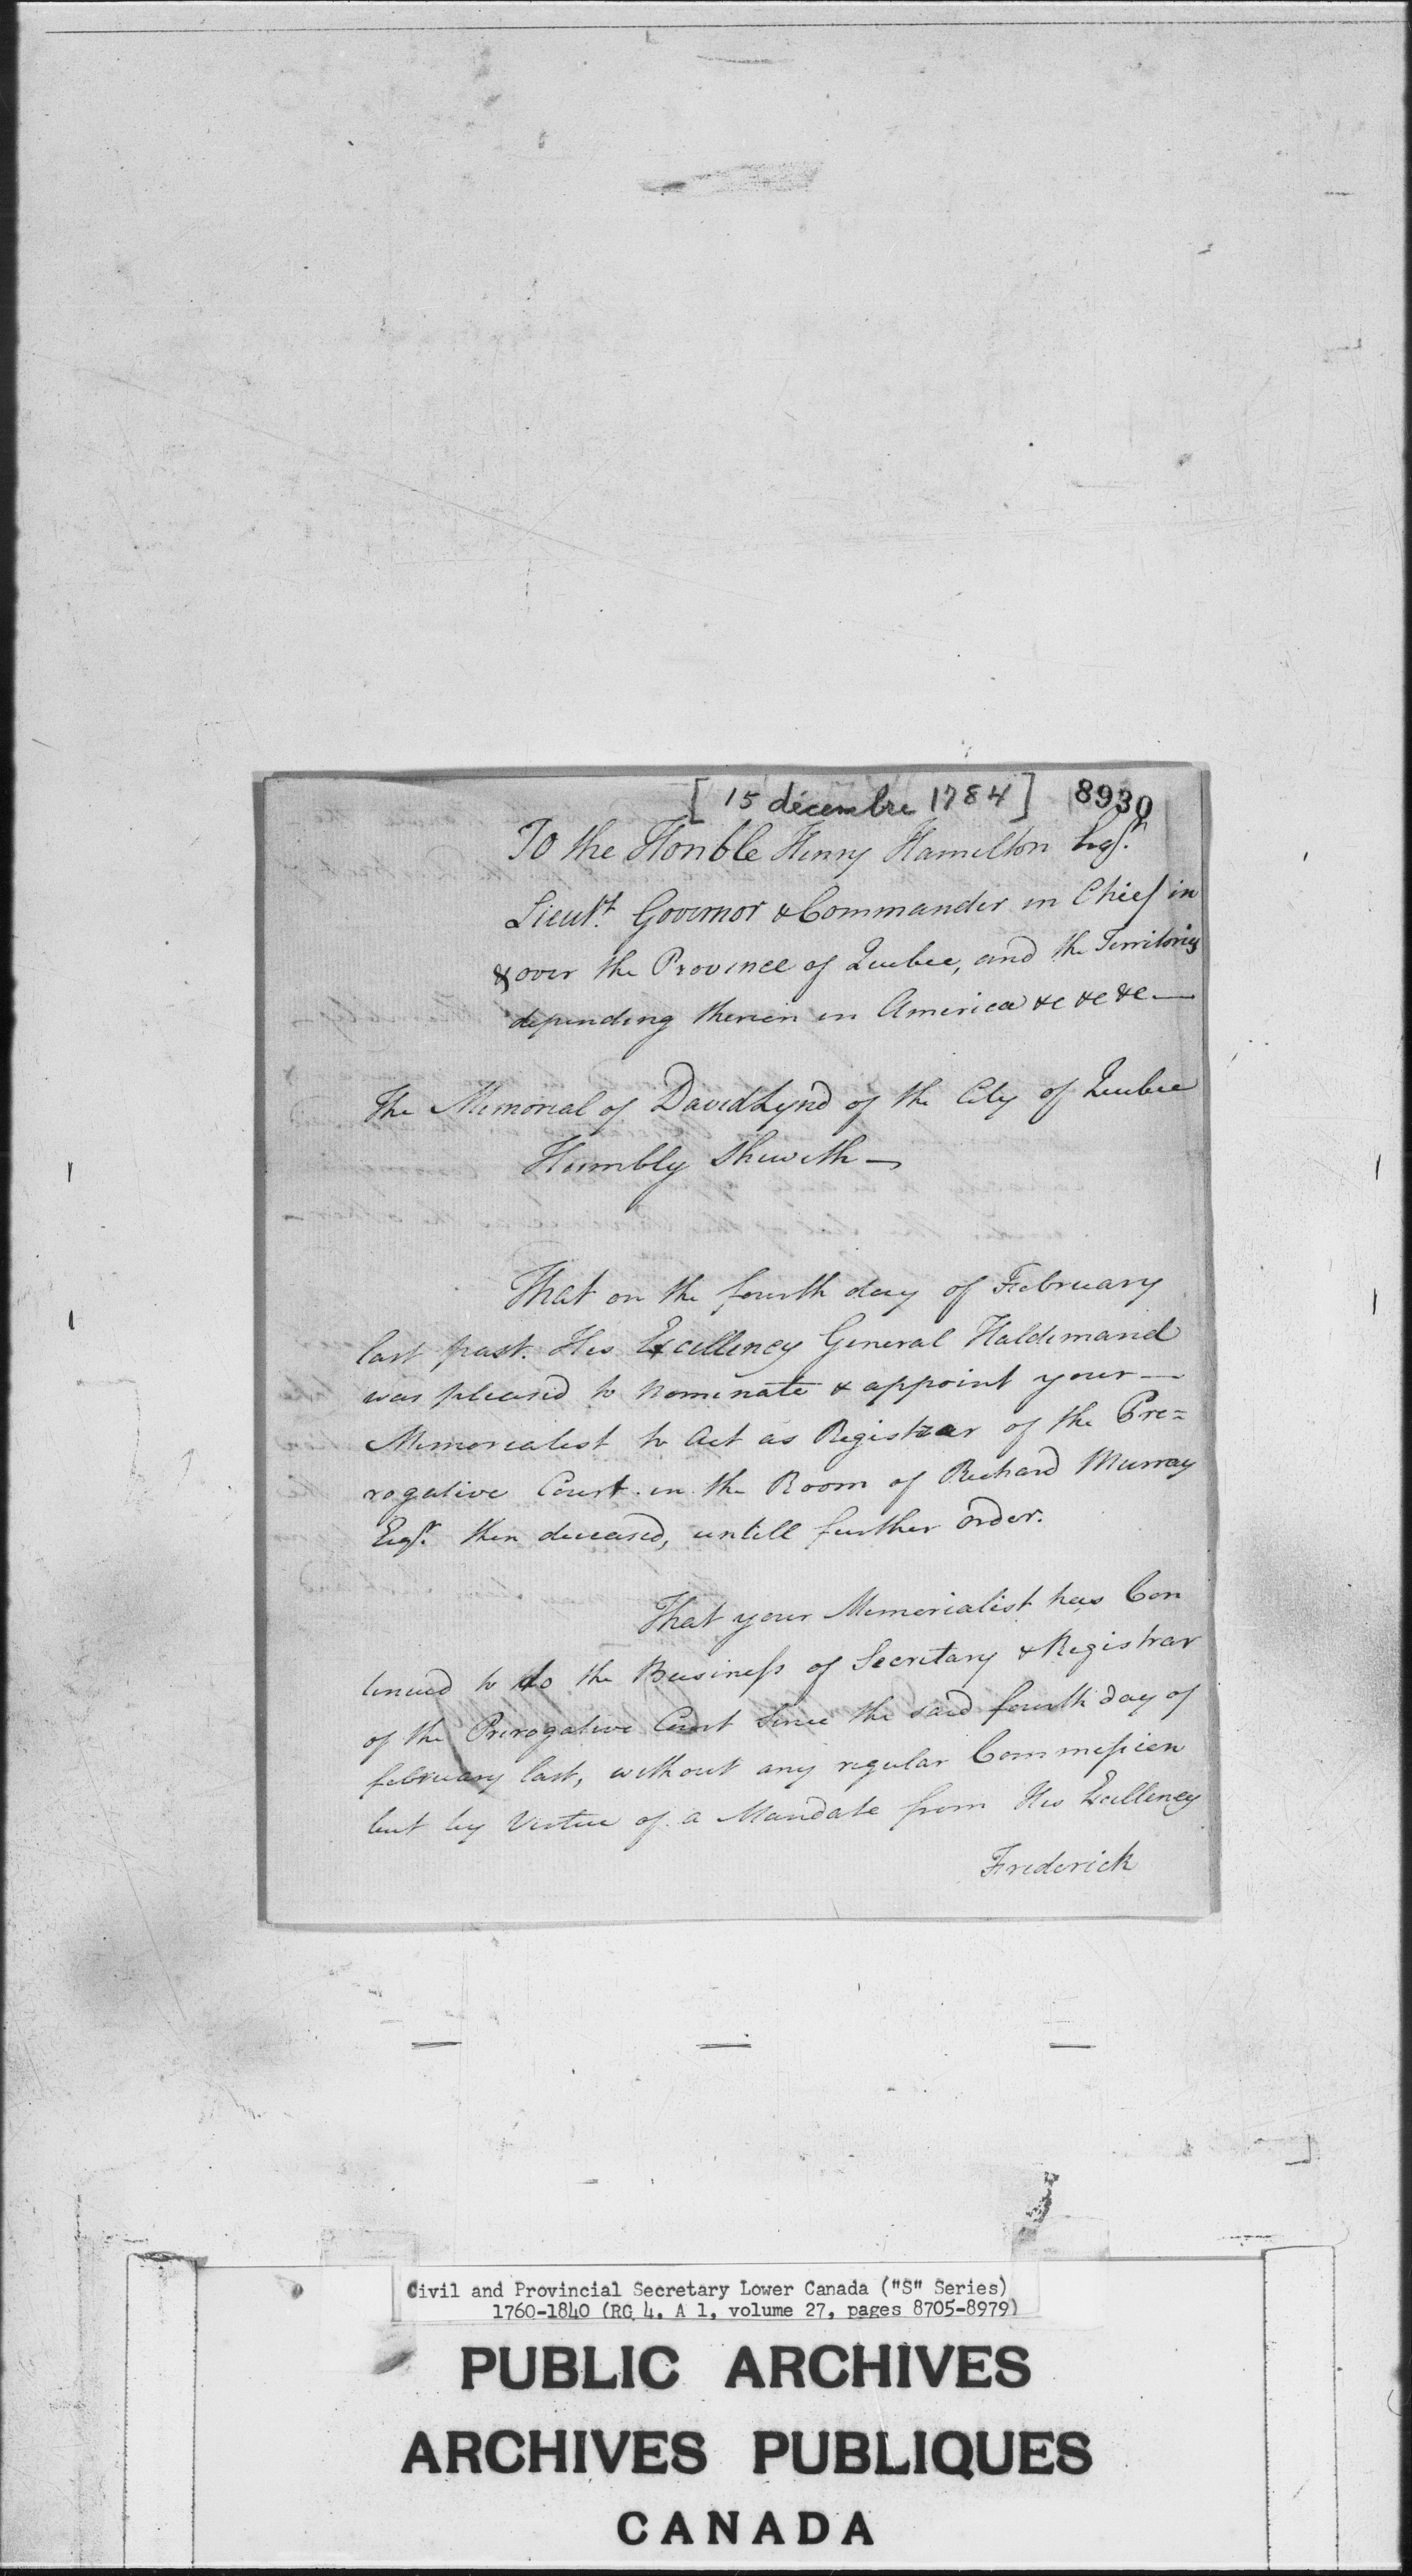 [15 décembre 1784] 8930
To the Honble Henry Hamilton Esqr.
Lieut. Governor & Commander in Chief in
& over the Province of Quebec, and the Territories
depending therein in America &c &c &c —
The Memorial of David Lynd of the City of Quebec
Humbly Sheweth —
That on the fourth day of February
last past. His Excellency General Haldimand
was pleased to nominate & appoint your —
Memorialist to Act as Registrar of the Pre=
rogative Court in the Room of Richard Murray
Esqr. then deceased, untill further order.
That your Memorialist has Con
tinued to do the Business of Secretary & Registrar
of the Prerogative Court Since the said fourth day of
february last, without any regular Commission
but by Virtue of a Mandate from His Excellency
Frederick
Civil and Provincial Secretary Lower Canada ("S" Series)
1760-1840 (RG 4, A 1, volume 27, pages 8705-8979)
PUBLIC ARCHIVES
ARCHIVES PUBLIQUES
CANADA